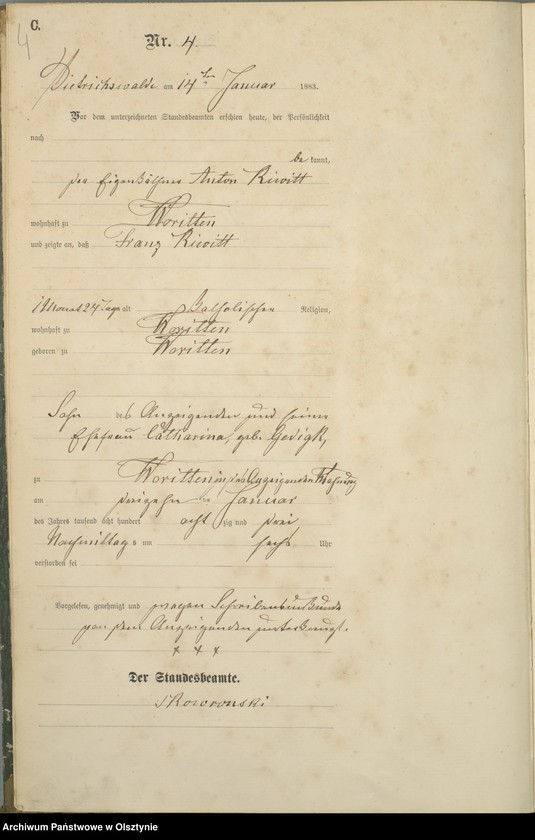 C.
4
Nr. 4
Dietrichswalde am 14ten Januar 1883.
Vor dem unterzeichneten Standesbeamten erschien heute, der Persönlichkeit
nach
be kannt,
der Eigenkäthner Anton Kiwitt
wohnhaft zu Woritten
und zeigte an, daß Franz Kiwitt
1 Monat 24 Tage alt katholischer Religion,
wohnhaft zu Woritten
geboren zu Woritten
Sohn des Anzeigenden und seiner
Ehefrau Catharina, geb. Gedigk,
zu Woritten in des Anzeigenden Wohnung
am dreizehnten Januar
des Jahres tausend acht hundert acht zig und drei
Nachmittags um sechs Uhr
verstorben sei
Vorgelesen, genehmigt und wegen Schreibensunkunde
von dem Anzeigenden unterkreuzt.
x x x
Der Standesbeamte.
Skowronski
Archiwum Państwowe w Olsztynie